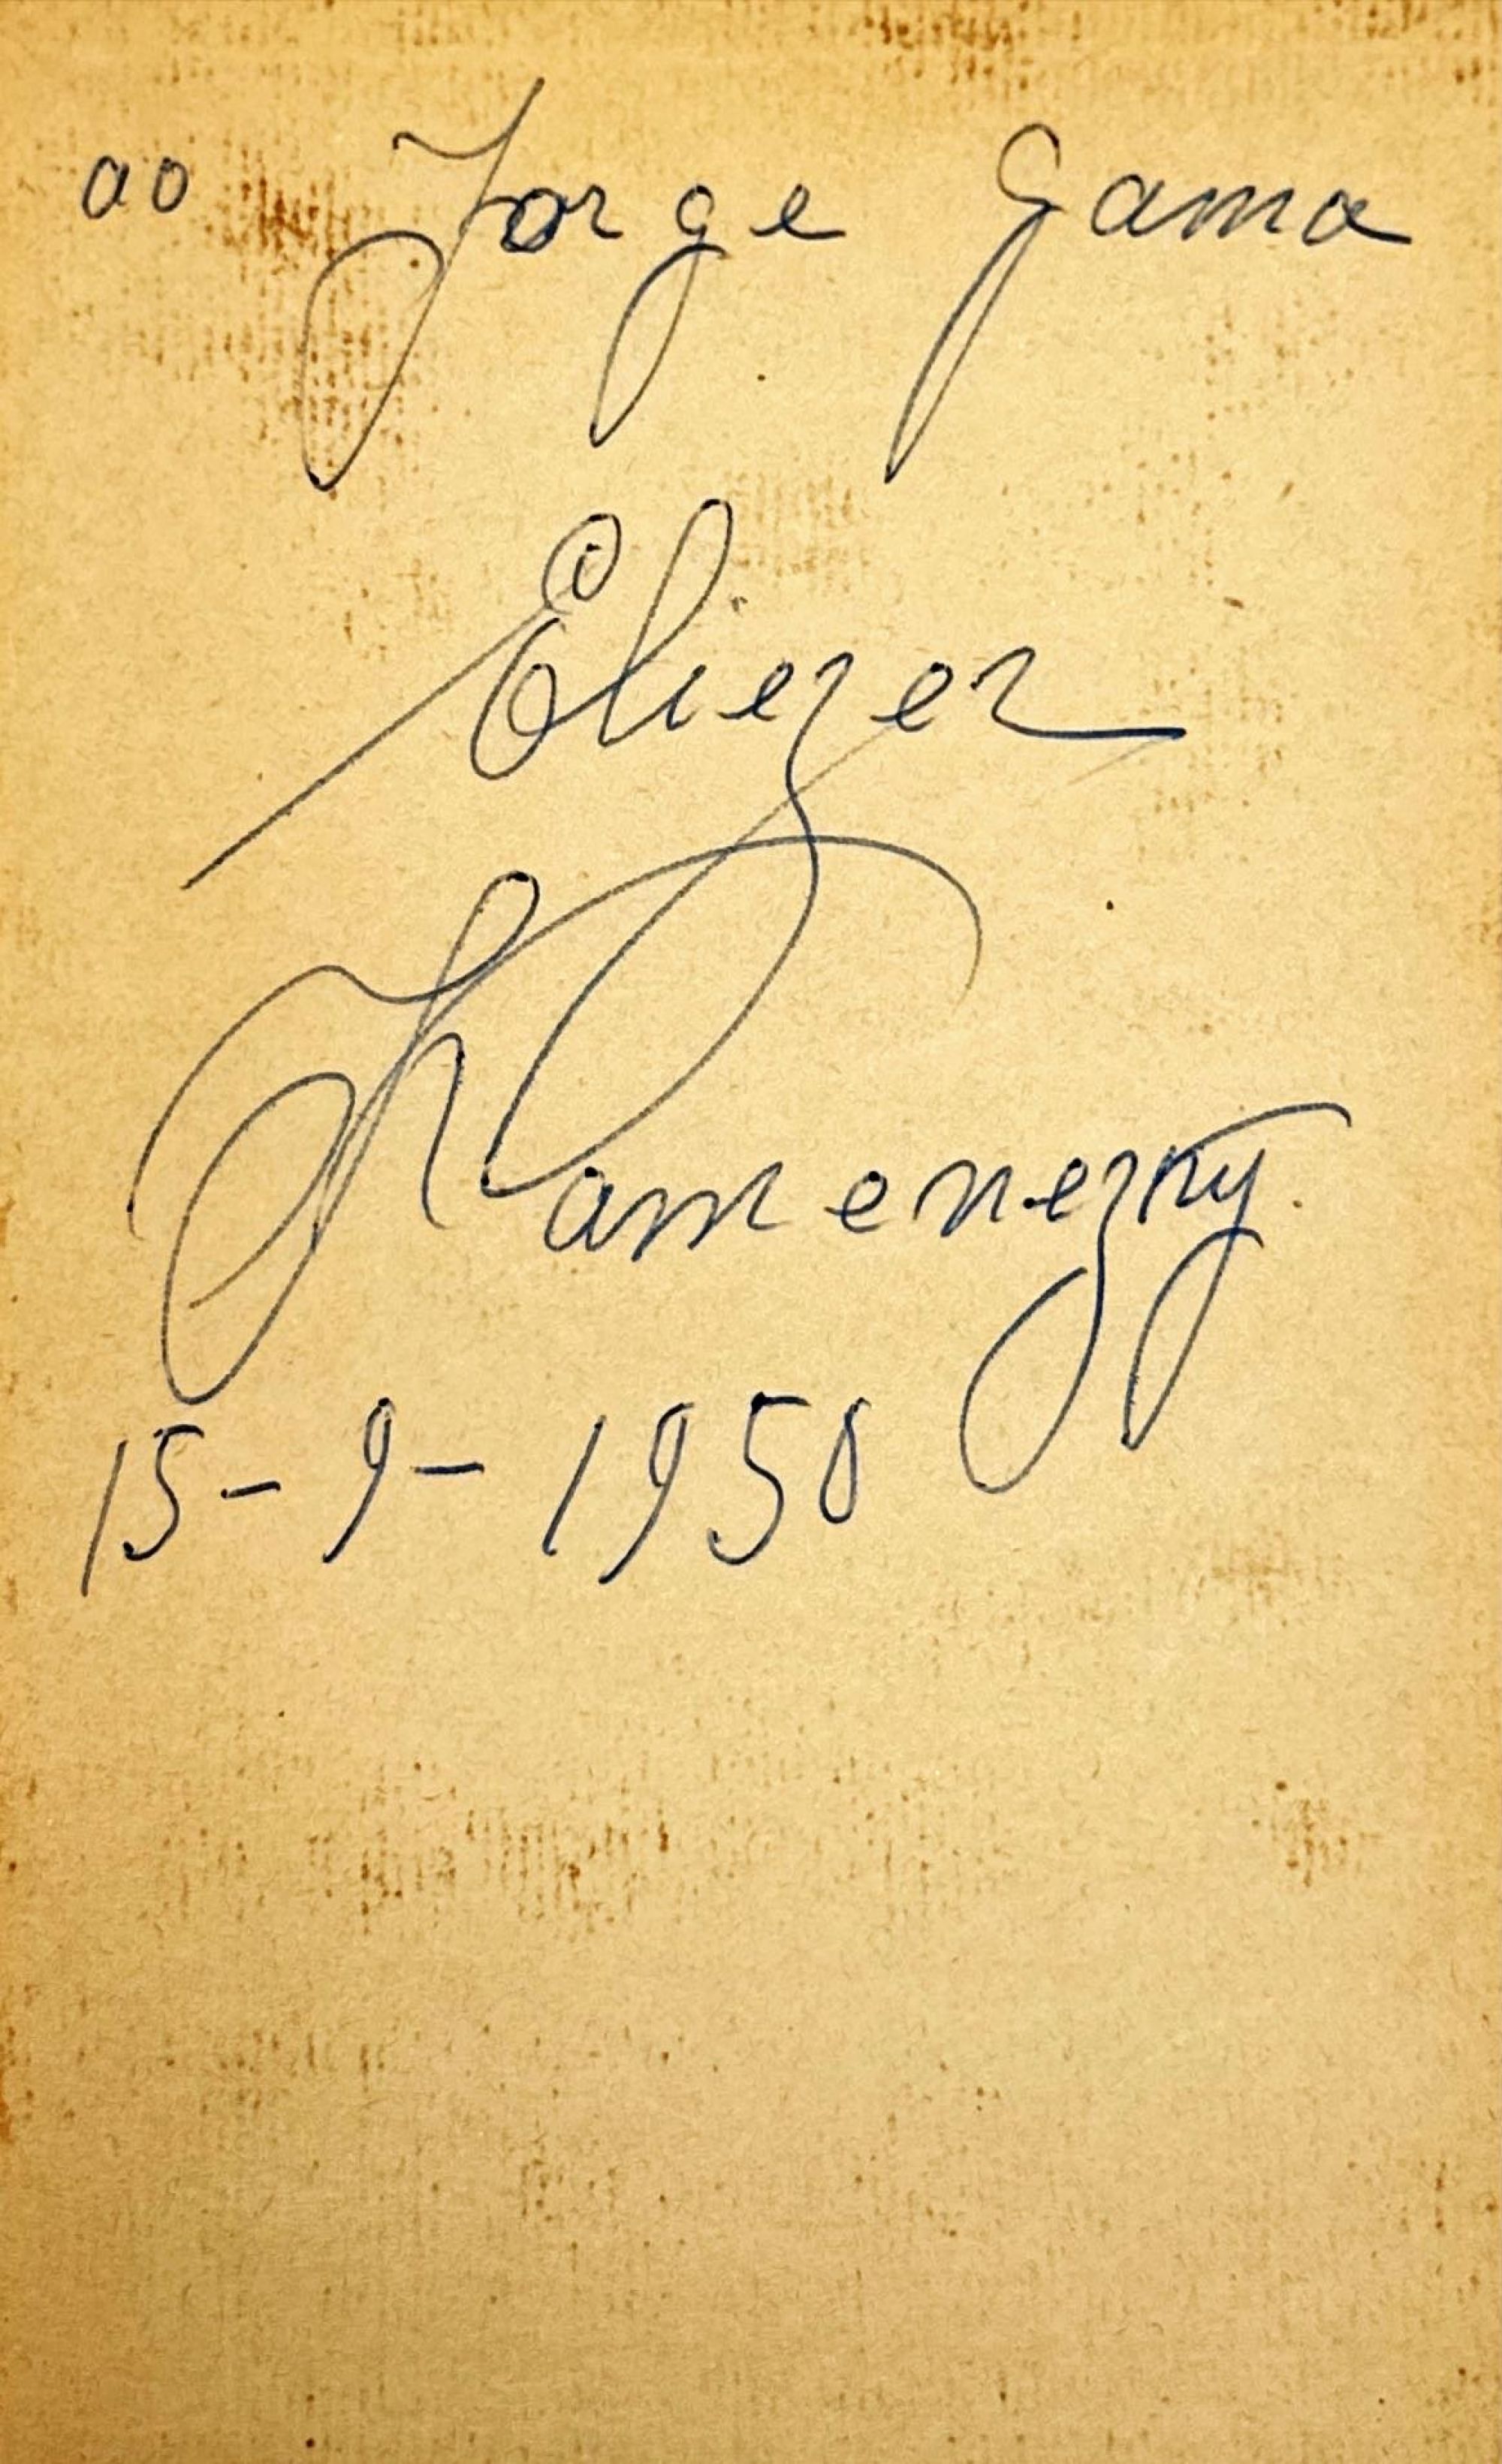 ao Jorge Gama
Eliezer
Kamenezky
15-9-1950